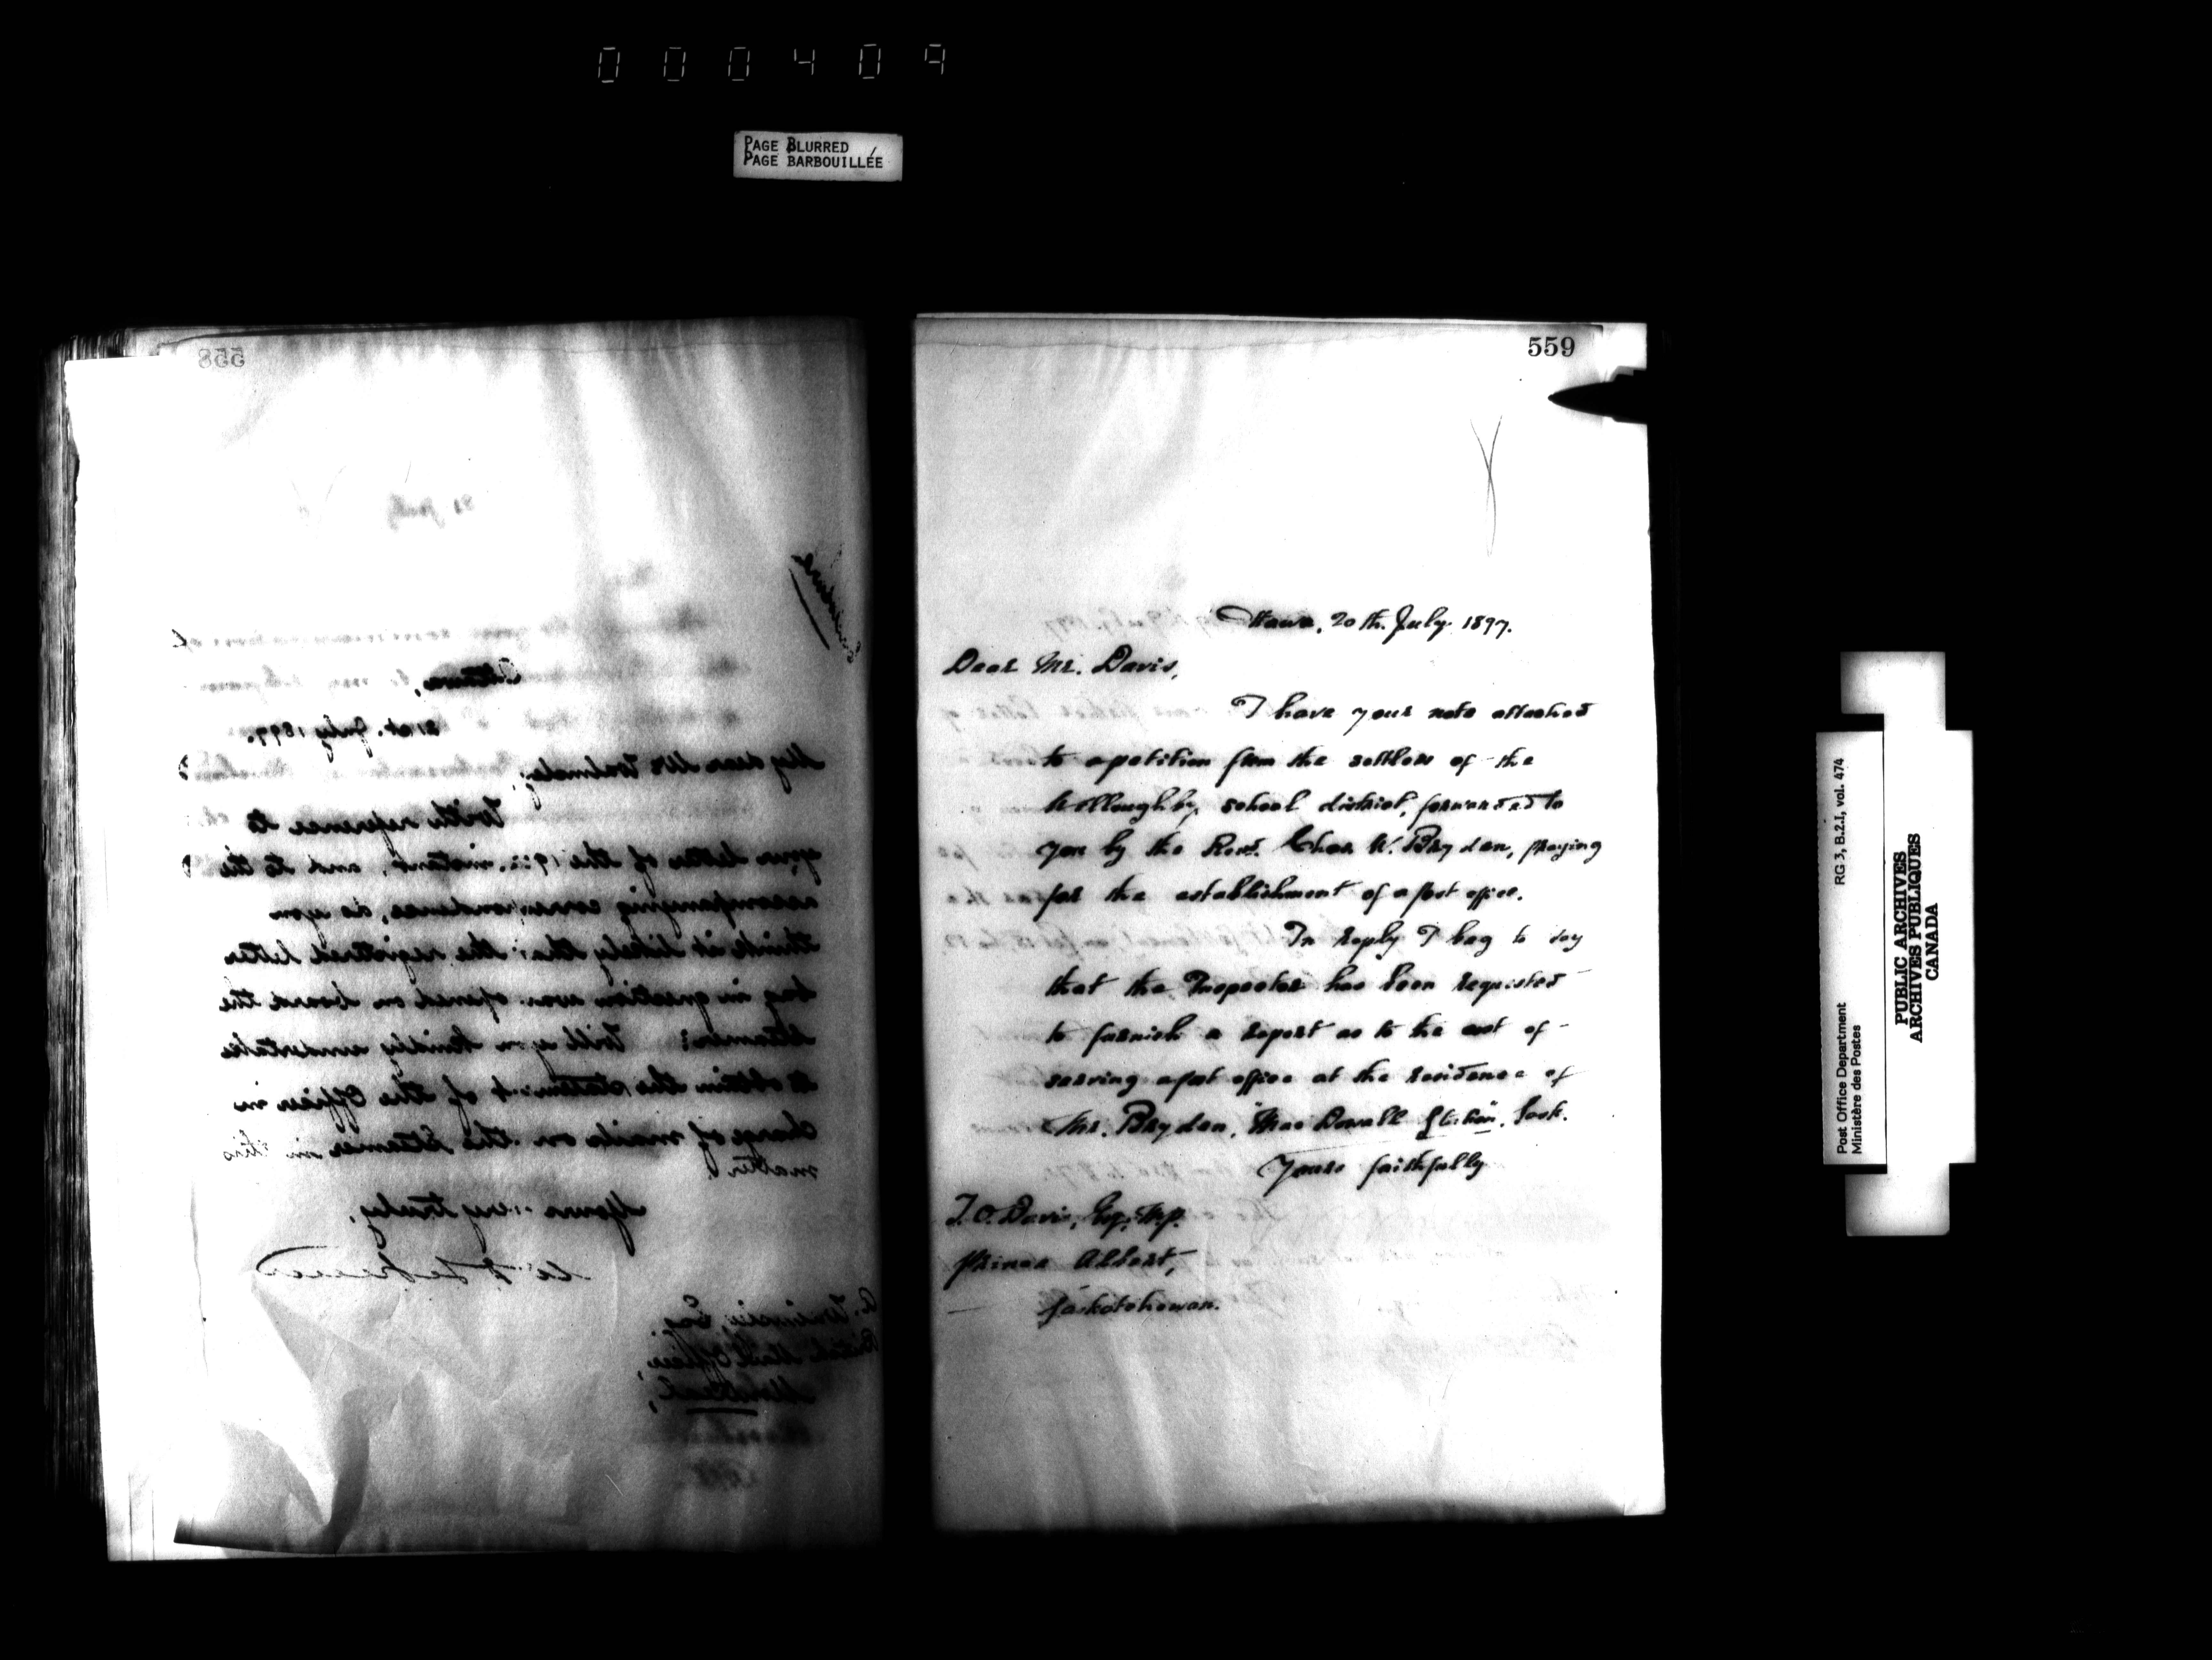 000409
PAGE BLURRED
PAGE BARBOUILLÉE
558
Ottawa,
21st. July 1897.
My dear Mr
With reference to
your letter of the 19th. instant, and to the
accompanying correspondence, do you
think it likely that the registered letter
bag in question was opened on board the
steamer? Will you kindly undertake
to obtain the statement of the Officer in
charge of mails on the Steamer in this
matter.
Yours very truly,
Esq,
British Mail Officer,
Montreal,
559
Ottawa, 20th. July 1897.
Dear Mr. Davis,
I have your note attached
to a petition from the settlers of the
Willoughby, school district, forwarded to
you by the Revd. Chas. W. Bryden, praying
for the establishment of a post office.
In reply I beg to say
that the Inspector has been requested
to furnish a report as to the cost of
serving a post office at the residence of
Mr. Bryden, "MacDowall Station", Sask.
Yours faithfully
T.O. Davis, Esq. M.P.
Prince Albert,
Saskatchewan.
Post Office Department
Ministère des Postes
RG 3, B.2.I, vol. 474
PUBLIC ARCHIVES
ARCHIVES PUBLIQUES
CANADA